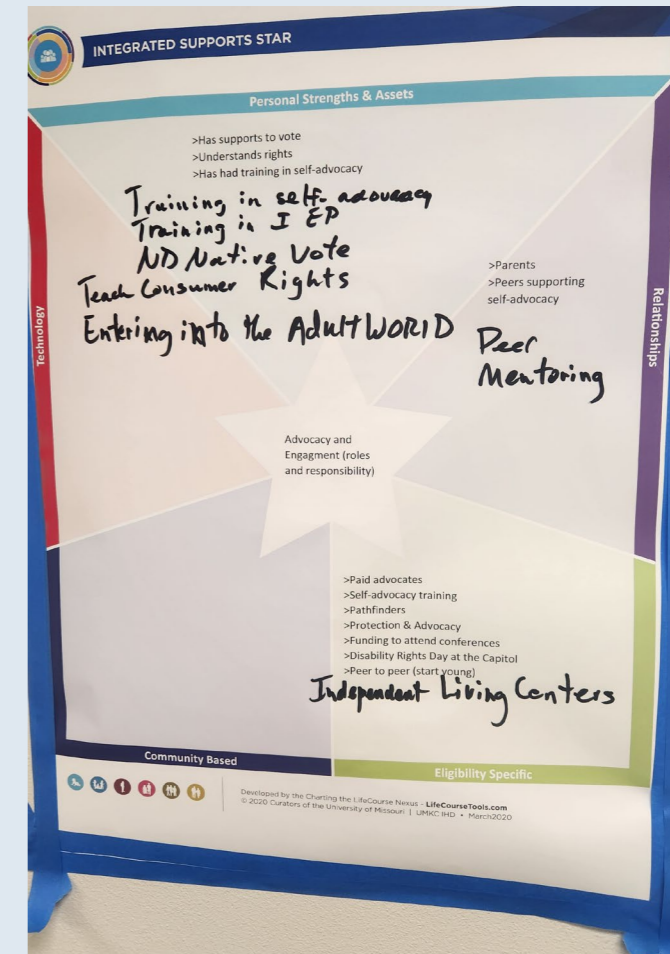 INTEGRATED SUPPORTS STAR
Personal Strengths & Assets
>Has supports to vote
>Understands rights
>Has had training in self-advocacy
Training in self-advocacy
Training in I EP
ND Native Vote
Teach Consumer Rights
Entering into the Adult WORlD
Technology
>Parents
>Peers supporting
self-advocacy
Peer
Mentoring
Relationships
Advocacy and
Engagment (roles
and responsibility)
>Paid advocates
>Self-advocacy training
>Pathfinders
>Protection & Advocacy
>Funding to attend conferences
>Disability Rights Day at the Capitol
>Peer to peer (start young)
Independent Living Centers
Community Based
Eligibility Specific
Developed by the Charting the LifeCourse Nexus - LifeCourseTools.com
© 2020 Curators of the University of Missouri | UMKC IHD • March2020